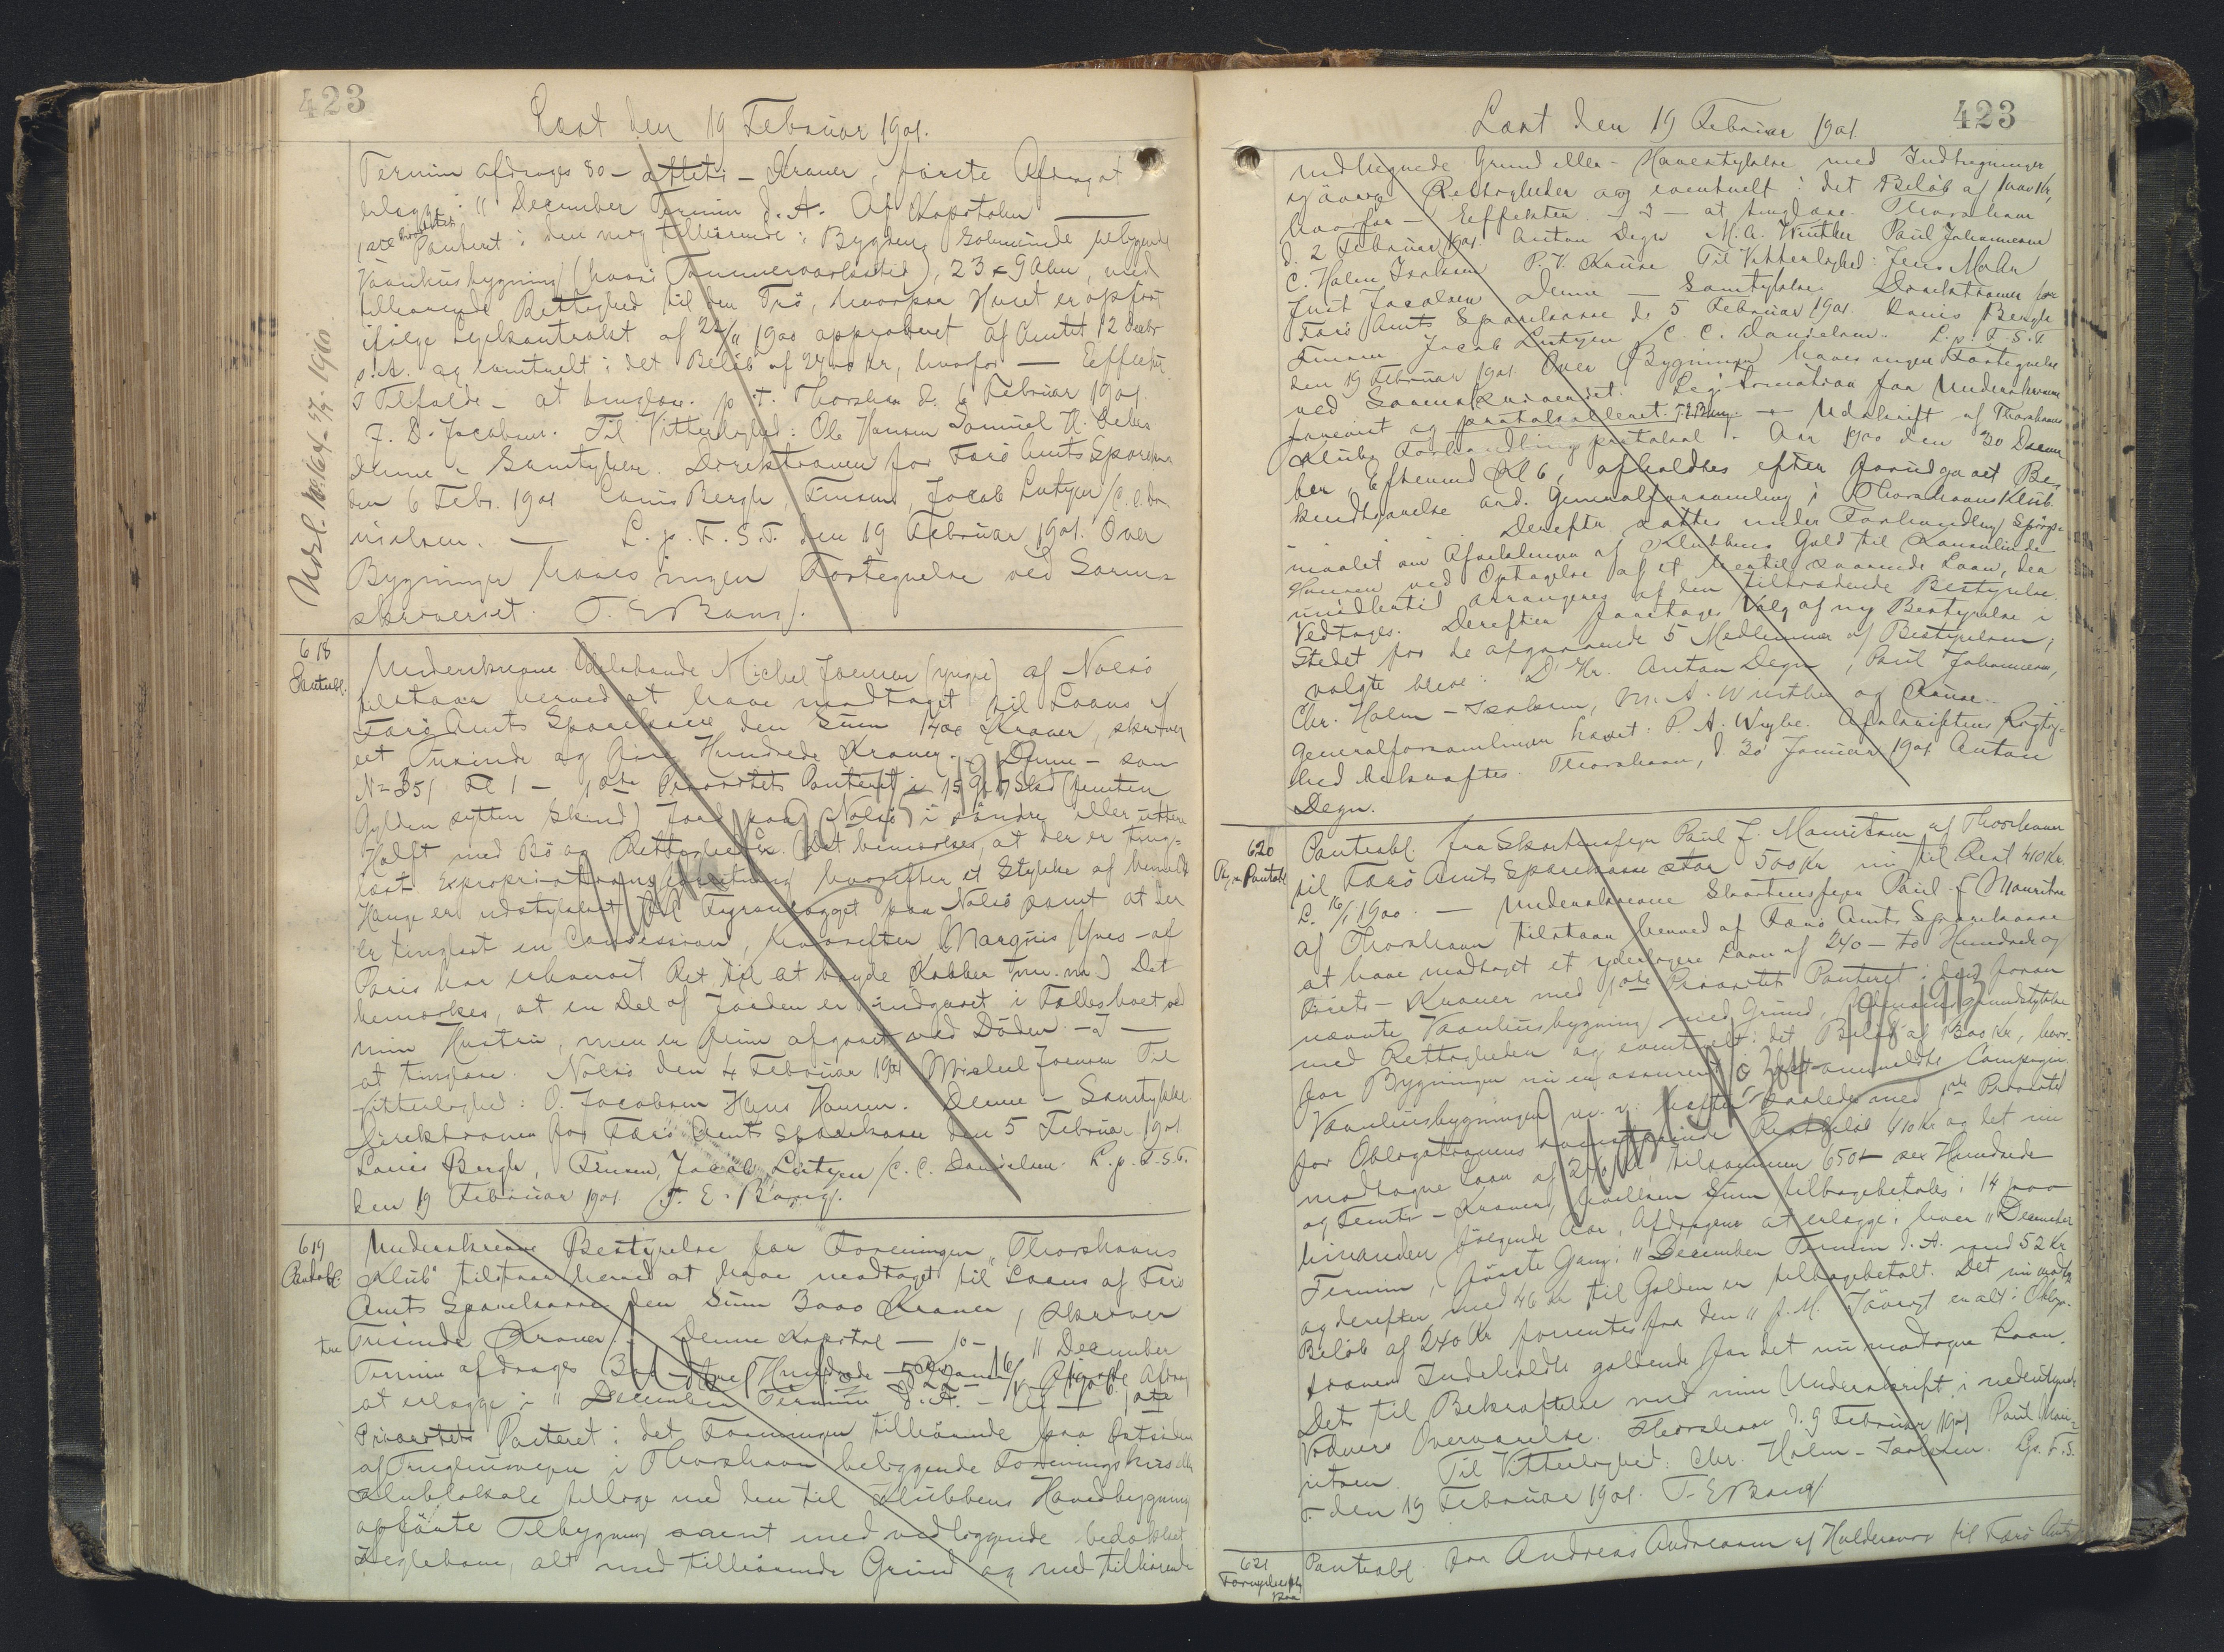 423
Læst den 19 Februar 1901.
Termin afdrages 80 – otteti – Kroner, første Afdrag at
erlægge i 11 December Termin d. A. Af Kapitalen
1ste Prioritets Panteret i den mig tilhørende i Bygdens
Vaanhusbygning (hvori Tømmerværksted), 23 x 9 Alen, med
tilhørende Rettighed til den Trö, hvorpaa Huset er opført
ifølge Lejekontrakt af 22/11 1900 approberet af Amtet 12 Decbr
s. A. og eventuelt i det Beløb af 2400 Kr, hvorfor — Effekter
I Tilfælde – at tinglæse. p. t. Thorshavn d. 6 Februar 1901.
J. D. Jacobsen. Til Vitterlighed: Ole Hansen Samuel H. Debes
Denne – Samtykke. Direktionen for Færø Amts Sparekasse
den 6 Febr. 1901 Louis Bergh, Finsen, Jacob Lützen /C. C. Da-
nielsen. — L. p. F. S. T. den 19 Februar 1901. Over
Bygninger haves ingen Fortegnelse ved Sorens-
skriveriet. T. E Bang.
Udsl. No 164 – 27/7 1910
618
Pantobl.
Underskrevne Odelsbonde Michel Joensen (yngre) af Nolsö
tilstaar herved at have modtaget til Laans af
Færø Amts Sparekasse den Sum 1400 Kroner, skriver
eet Tusinde og fire Hundrede Kroner. – Denne – som
No 351 Fl 1 – 1ste Prioritets Panteret i 15 Gl 17 Skd (femten
Gylden sytten Skind) Jord paa Nolsö i søndre eller
Halft med Bö og Rettigheder. (Det bemærkes, at der er ting-
læst Expropriations hvorefter et Stykke af bemeldt
Hauge er udstykket til Fyranlægget paa Nolsö samt at der
er tinglæst en Concession, hvorefter Marquis Yves – af
Paris har erhvervet Ret til at bryde Kobber m. m.) Det
bemærkes, at en Del af Jorden er indgaaet i Fællesboet ved
min Hustru, men er hun afgaaet ved Døden. – I —
at tinglæse. Nolsö den 4 Februar 1901 Michel Joensen Til
Vitterlighed: O. Jacobsen Hans Hansen. Denne – Samtykke.
Direktionen for Færø Amts Sparekasse den 5 Februar 1901
Louis Bergh, Finsen, Jacob Lützen /C. C. Danielsen. L. p. F. S. T.
den 19 Februar 1901. T. E. Bang.
619
Pantobl.
Underskrevne Bestyrelse for Foreningen "Thorshavns
Klub" tilstaar herved at have modtaget til Laans af Færø
Amts Sparekasse den Sum 3000 Kroner, skriver
tre Tusinde Kroner. – Denne Kapital – 10 – 11 December
Termin afdrages Hundrede – Kroner, første Afdrag
at erlægge i 11 December Termin d. A. – 1ste
Prioritets Panteret i det Foreningen tilhørende paa Østsiden
af Tinghusvejen i Thorshavn beliggende Foreningshus eller
Klublokale tillige med den til Klubbens Hovedbygning
opførte Tilbygning samt med vedliggende bedækket
Keglebane, alt med tilhørende Grund og med tilhørende
423
Læst den 19 Februar 1901.
indhegnede Grund eller – Havestykke med Indhegninger
og øvrige Rettigheder og eventuelt i det Beløb af Kr,
hvorfor – Effekter – I – at tinglæse. Thorshavn
d. 2 Februar 1901. Anton Degn M. A. Winther Paul Johannesen
C. Holm Isaksen P. V. Krause Til Vitterlighed: Jens Mohr
Just Jacobsen Denne — Samtykke Direktionen for
Færø Amts Sparekasse d. 5 Februar 1901. Louis Bergh
Finsen Jacob Lützen /C. C. Danielsen. L. p. F. S. T.
den 19 Februar 1901 Over Bygninger haves ingen Fortegnelse
ved Sorenskriveriet. Legitimation for Underskriverne
forevist og protokolleret. T. E Bang. — Udskrift af Thorshavns
Klubs Forhandlingsprotokol. – Aar 1900 den 30 Decem-
ber, Eftermd Kl 6, afholdtes efter forudgaaet Be-
kendtgørelse ord. Generalforsamling i Thorshavns Klub.
Derefter sattes under Forhandling Spørgs-
maalet om Afbetalingen af Klubbens Gæld til Konsulinde
Hansen ved Optagelse af et hertil svarende Laan, der
imidlertid arrangeres af den tiltrædende Bestyrelse.
Vedtages. Derefter foretages Valg af ny Bestyrelse i
Stedet for de afgaaende 5 Medlemmer af Bestyrelsen;
valgte bleve: D'Hr. Anton Degn, Paul Johannesen,
Chr. Holm – Isaksen, M. A. Winther og Krause.
Generalforsamlingen hævet. P. A. Weyhe. Afskriftens Rigtig-
hed bekræftes. Thorshavn, d. 30 Januar 1901 Anton
Degn.
620
Pantobl
Pantobl. fra Skorstensfejer Paul J. Mouritsen af Thorshavn
til Færø Amts Sparekasse stor 500 Kr nu til Rest 410 Kr.
L. 16/1 1900. — Underskrevne Skorstensfejer Paul J Mouritsen
af Thorshavn tilstaar herved af Færø Amts Sparekasse
at have modtaget et yderligere Laan af 240 – to Hundrede og
fireti – Kroner med 1ste Prioritets Panteret i den foran
nævnte Vaanhusbygning med Grund,
med Rettigheder og eventuelt i det Beløb af 1300 Kr, hvor-
for Bygningen nu er assureret i ommeldte Compagni.
Vaanhusbygningen m. v. hæfter saaledes med 1ste Prioritet
for Obligationens ovenstaaende Restbeløb 410 Kr og det nu
modtagne Laan af 240 Kr, tilsammen 650 – sex Hundrede
og femti – Kroner, hvilken Sum tilbagebetales i 14 paa
hinanden følgende Aar, Afdragene at erlægge i hver 11 December
Termin, første Gang i 11 December Termin d. A. med 52 Kr
og derefter med 46 Kr til Gælden er tilbagebetalt. Det nu modtagne
Beløb af 240 Kr forrentes fra den 11 f. M. Iøvrigt er alt i Obliga-
tionen Indeholdte gældende for det nu modtagne Laan.
Det til Bekræftelse med min Underskrift i nedentegnede
Vidners Overværelse. Thorshavn d. 9 Februar 1901 Paul Mou-
ritsen Til Vitterlighed: Chr. Holm – Isaksen. L. p. F. S.
T. den 19 Februar 1901. T. E Bang
621
Pantobl fra Andreas Andreasen af Haldersvig til Færø Amts